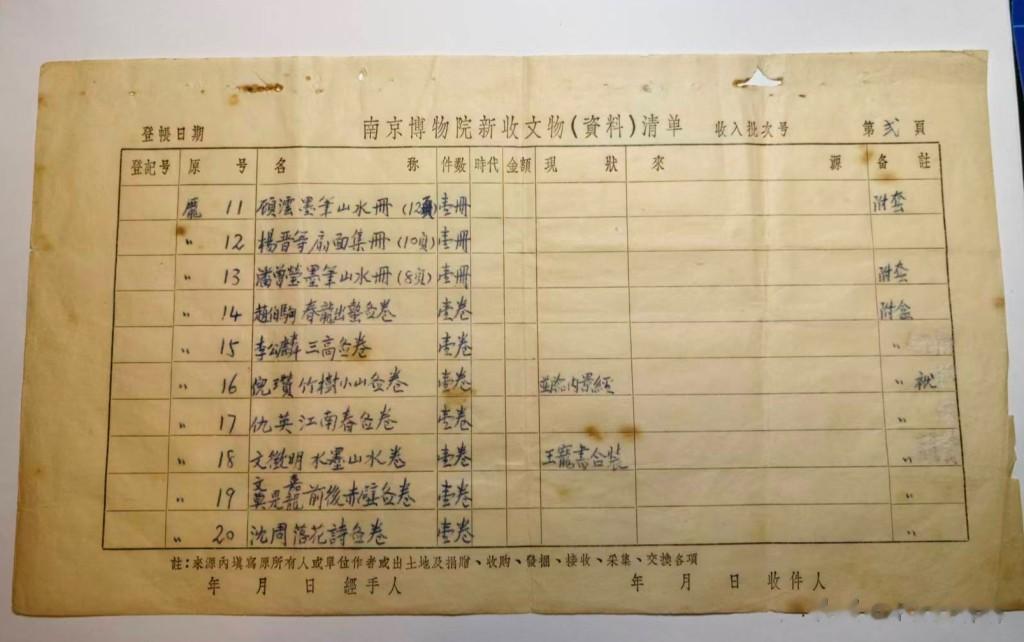 登帳日期 南京博物院新收文物(資料)清单 收入批次号 第 弍 頁
登記号 原号 名称 件数 時代 金額 現狀 來源 备註
龐 11 顾澐墨笔山水冊 (12頁) 壹冊 附套
〃 12 楊晋等扇面集冊 (10页) 壹冊
〃 13 潘曾瑩墨笔山水冊 (8页) 壹冊 附套
〃 14 趙伯駒 春龍出蟄图卷 壹卷 附盒
〃 15 李公麟 三高图卷 壹卷 〃
〃 16 倪瓚 竹樹小山图卷 壹卷 〃
〃 17 仇英 江南春图卷 壹卷 〃
〃 18 文徵明 水墨山水卷 壹卷 王寵書合裝 〃
〃 19 文嘉 莫是龍 前後赤壁图卷 壹卷 〃
〃 20 沈周 落花詩图卷 壹卷 〃
註：來源內填寫原所有人或單位作者或出土地及捐贈、收购、發掘、接收、采集、交換各項
年 月 日 經手人 年 月 日 收件人